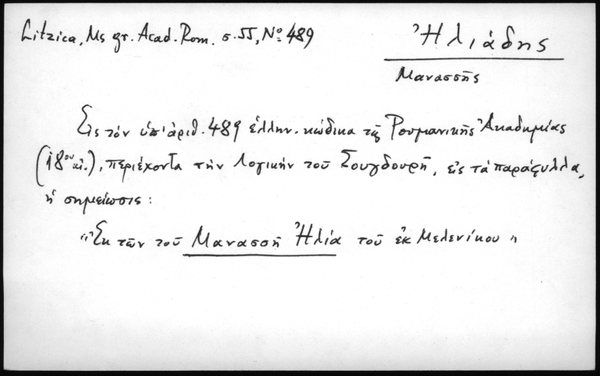 Litzica, Ms gr. Acad. Rom. σ. 55, Nº 489
Ἠλιάδης
Μανασσῆς
Εἰς τὸν ὑπ' ἀριθ. 489 ἑλλην. κώδικα τῆς Ρουμανικῆς Ἀκαδημίας
(18ου αἰ.), περιέχοντα τὴν Λογικὴν τοῦ Σουγδουρῆ, εἰς τὰ παράφυλλα,
ἡ σημείωσις:
"Ἐκ τῶν τοῦ Μανασσῆ Ἠλία τοῦ ἐκ Μελενίκου"